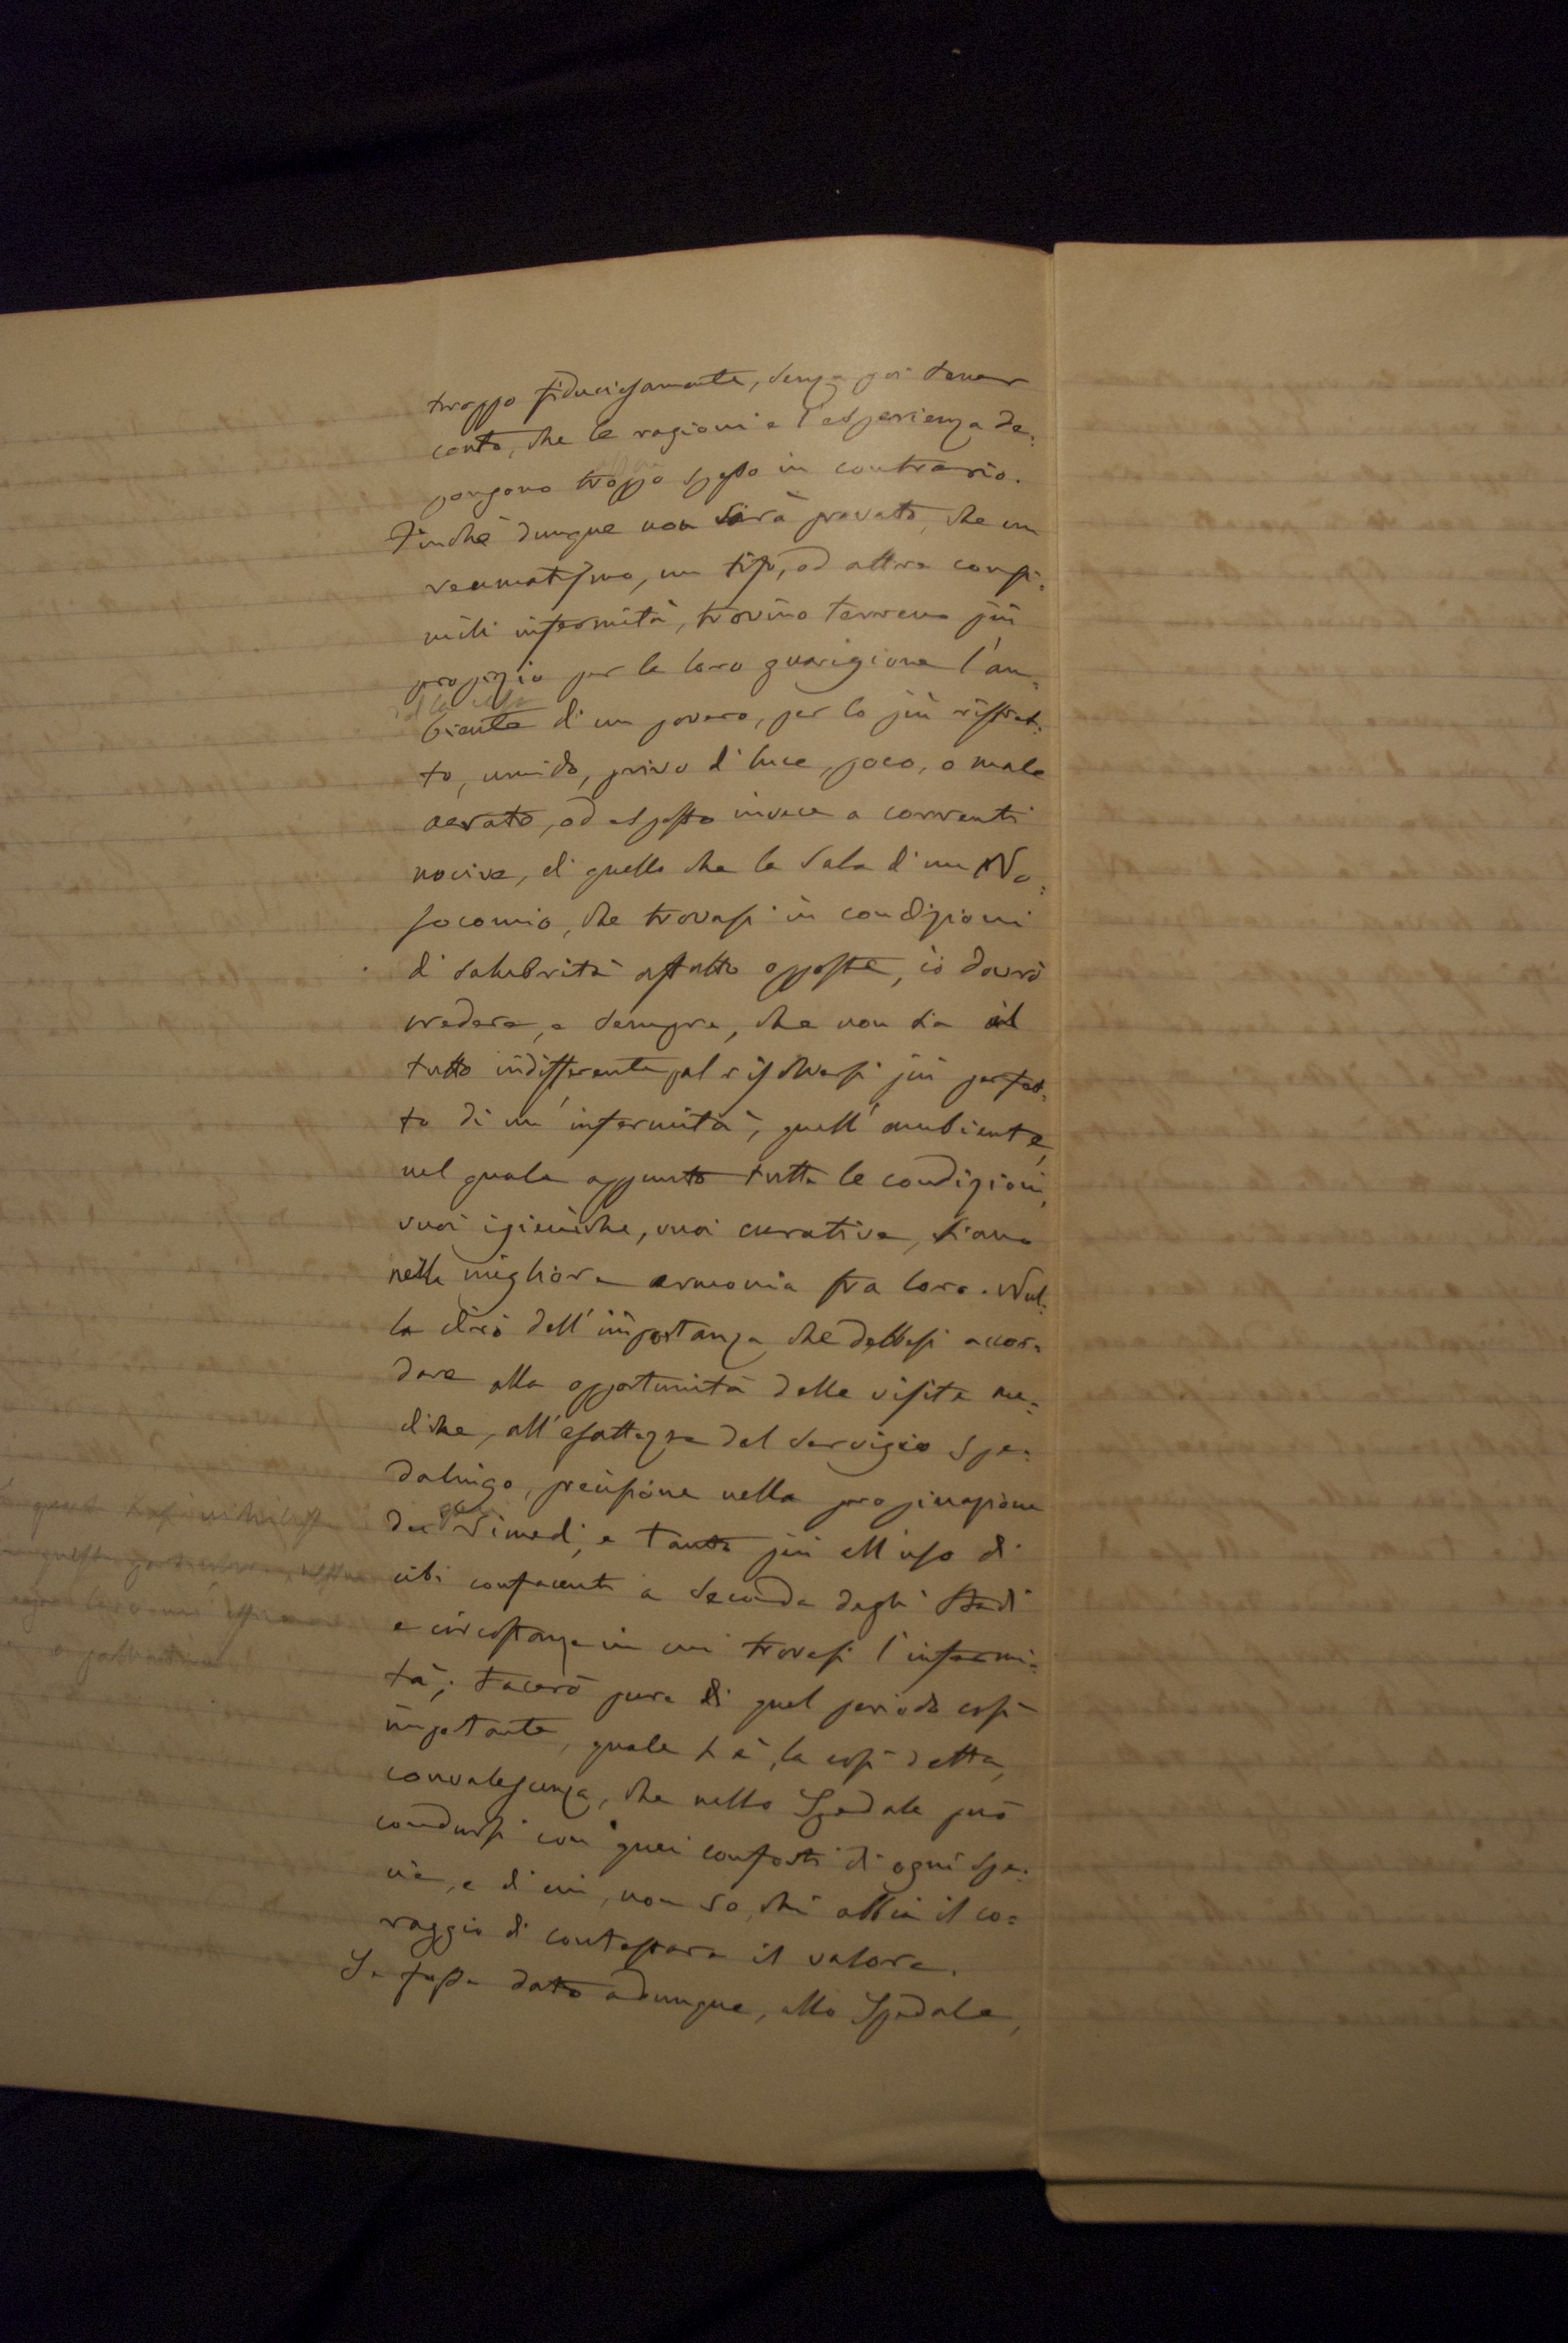 troppo fiduciosamente, senza poi tener
conto, che le ragioni e l'esperienza de=
pongono troppo spesso in contrario.
Finchè dunque non sarà provato, che un
reumatismo, un tifo, od altre consi=
mili infermità, trovino terreno più
propizio per la loro guarigione l'am=
biente di un povero, per lo più ristret=
to, umido, privo di luce, poco, o male
aerato, od esposto invece a correnti
nocive, di quello che la Sala di un No=
socomio, che trovasi in condizioni
di salubrità affatto opposte, io dovrò
credere, e sempre, che non sia il
tutto indifferente pel risolversi più perfet=
to di un'infermità, quell'ambiente,
nel quale appunto tutte le condizioni,
vuoi igieniche, vuoi curative, siano
nella migliore armonia fra loro. Nul=
la dirò dell'importanza che debbesi accor=
dare alla opportunità delle visite me=
diche, all'esattezza del servizio Spe=
dalingo, precisione nella propinazione
dei rimedi, e tanto più all'uso di
cibi confacenti a seconda degli stadi
e circostanze in cui trovasi l'infermi=
tà; tacerò pure di quel periodo così
importante, quale si è, la così detta,
convalescenza, che nello Spedale può
condursi con quei conforti di ogni spe=
cie, e di cui, non so, chi abbia il co=
raggio di contestare il valore.
Se fosse dato adunque, allo Spedale,